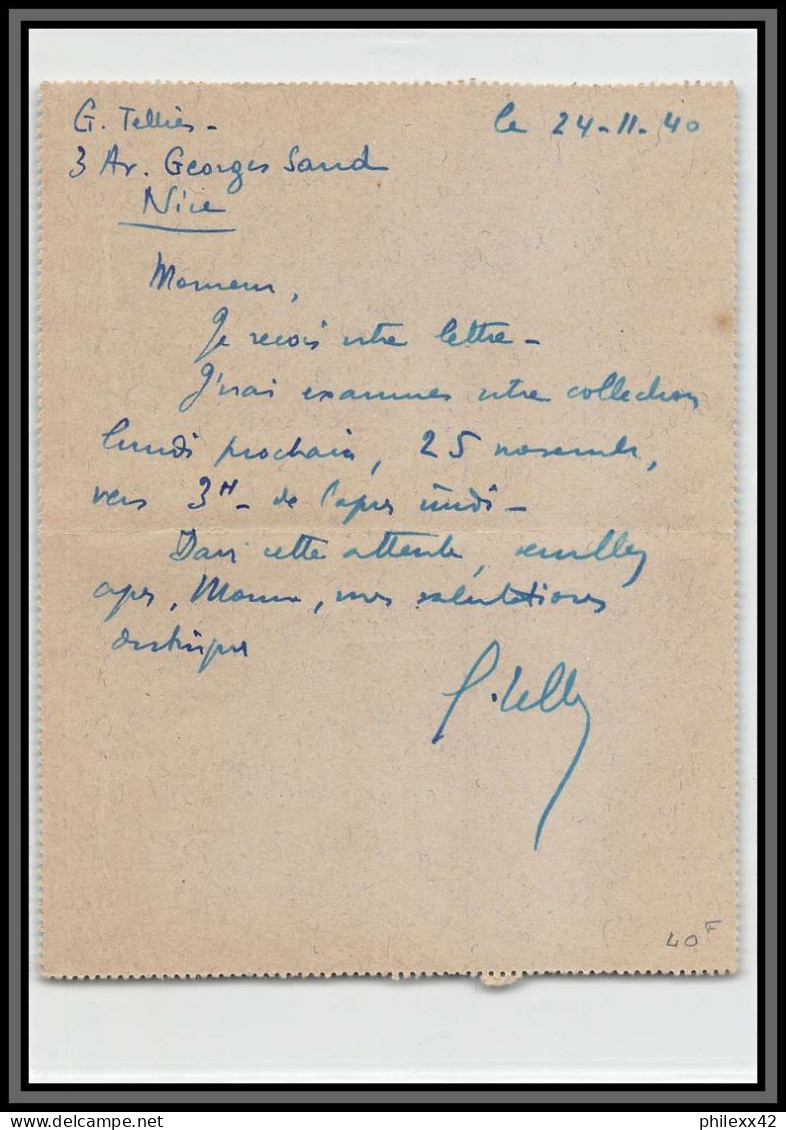 G. Tellier -
le 24-11-40
3 Av. Georges Sand
Nice
Monsieur,
Je reçois votre lettre -
J'irai examiner votre collection
lundi prochain, 25 novembre,
vers 3H - de l'après midi -
Dans cette attente, veuillez
agréer, Monsieur, mes salutations
distinguées
G. Tellier
40F
philexx42